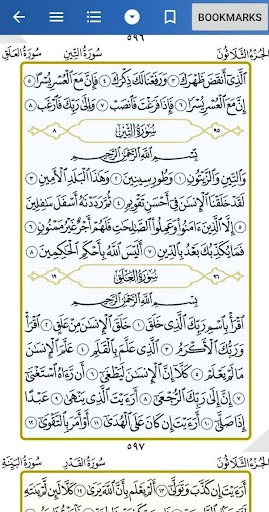 BOOKMARKS
٥٩٦
الجُزءُ الثَّلَاثُونَ سُورَةُ التِّينِ سُورَةُ العَلَقِ
الَّذِي أَنقَضَ ظَهْرَكَ ٣ وَرَفَعْنَا لَكَ ذِكْرَكَ ٤ فَإِنَّ مَعَ الْعُسْرِ يُسْرًا ٥
إِنَّ مَعَ الْعُسْرِ يُسْرًا ٦ فَإِذَا فَرَغْتَ فَانصَبْ ٧ وَإِلَىٰ رَبِّكَ فَارْغَب ٨
٩٥ سُورَةُ التِّينِ ٨
بِسْمِ اللَّهِ الرَّحْمَٰنِ الرَّحِيمِ
وَالتِّينِ وَالزَّيْتُونِ ١ وَطُورِ سِينِينَ ٢ وَهَٰذَا الْبَلَدِ الْأَمِينِ ٣
لَقَدْ خَلَقْنَا الْإِنسَٰنَ فِي أَحْسَنِ تَقْوِيمٍ ٤ ثُمَّ رَدَدْنَٰهُ أَسْفَلَ سَٰفِلِينَ
٥ إِلَّا الَّذِينَ ءَامَنُوا وَعَمِلُوا الصَّٰلِحَٰتِ فَلَهُمْ أَجْرٌ غَيْرُ مَمْنُونٍ ٦
فَمَا يُكَذِّبُكَ بَعْدُ بِالدِّينِ ٧ أَلَيْسَ اللَّهُ بِأَحْكَمِ الْحَٰكِمِينَ ٨
٩٦ سُورَةُ العَلَقِ ١٩
بِسْمِ اللَّهِ الرَّحْمَٰنِ الرَّحِيمِ
اقْرَأْ بِاسْمِ رَبِّكَ الَّذِي خَلَقَ ١ خَلَقَ الْإِنسَٰنَ مِنْ عَلَقٍ ٢ اقْرَأْ
وَرَبُّكَ الْأَكْرَمُ ٣ الَّذِي عَلَّمَ بِالْقَلَمِ ٤ عَلَّمَ الْإِنسَٰنَ
مَا لَمْ يَعْلَمْ ٥ كَلَّا إِنَّ الْإِنسَٰنَ لَيَطْغَىٰ ٦ أَن رَّءَاهُ اسْتَغْنَىٰ
٧ إِنَّ إِلَىٰ رَبِّكَ الرُّجْعَىٰ ٨ أَرَءَيْتَ الَّذِي يَنْهَىٰ ٩ عَبْدًا
إِذَا صَلَّىٰ ١٠ أَرَءَيْتَ إِن كَانَ عَلَى الْهُدَىٰ ١١ أَوْ أَمَرَ بِالتَّقْوَىٰ ١٢
٥٩٧
الجُزءُ الثَّلَاثُونَ سُورَةُ القَدْرِ سُورَةُ البَيِّنَةِ
أَرَءَيْتَ إِن كَذَّبَ وَتَوَلَّىٰ ١٣ أَلَمْ يَعْلَم بِأَنَّ اللَّهَ يَرَىٰ ١٤ كَلَّا لَئِن لَّمْ يَنتَهِ